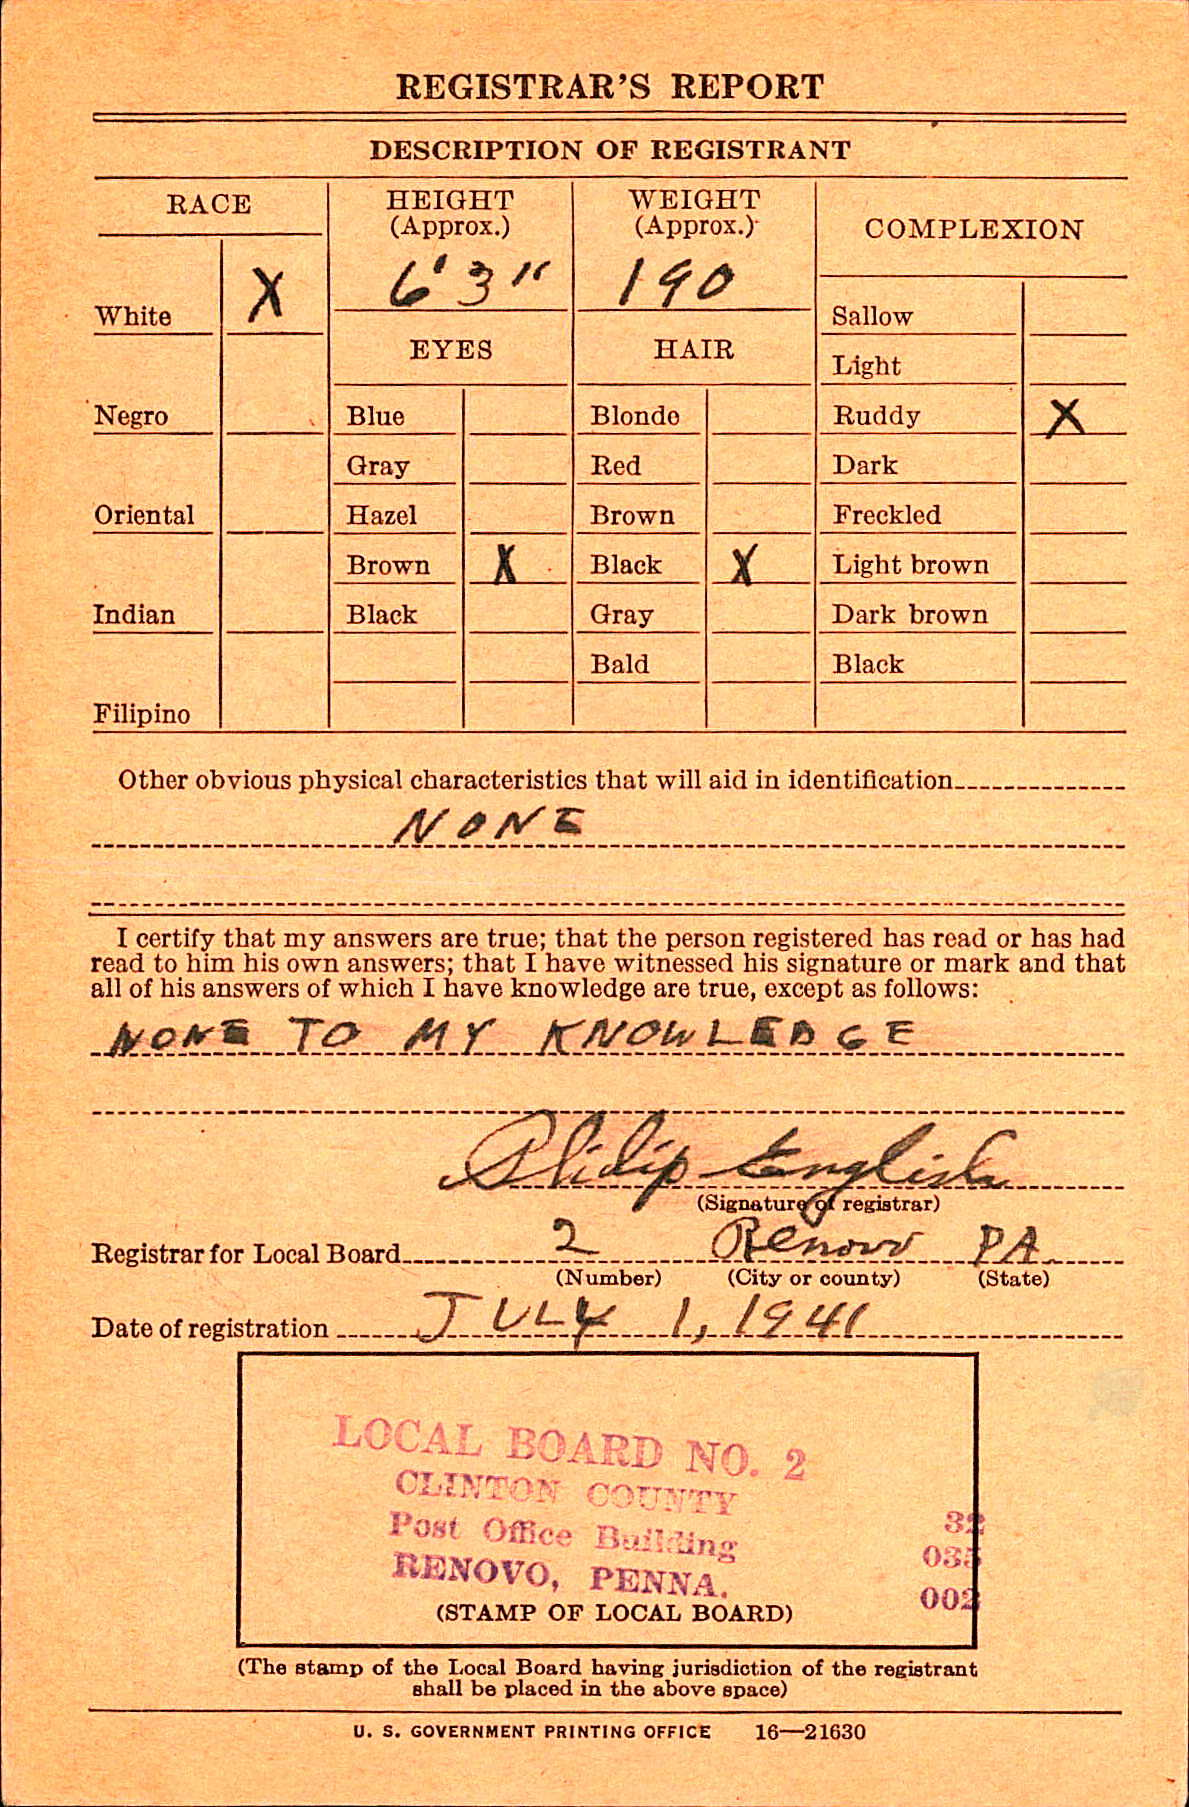 REGISTRAR'S REPORT
DESCRIPTION OF REGISTRANT
RACE
HEIGHT
(Approx.)
WEIGHT
(Approx.)
COMPLEXION
White X
6'3"
190
Sallow
EYES
HAIR
Light
Negro
Blue
Blonde
Ruddy X
Gray
Red
Dark
Oriental
Hazel
Brown
Freckled
Brown X
Black X
Light brown
Indian
Black
Gray
Dark brown
Bald
Black
Filipino
Other obvious physical characteristics that will aid in identification
NONE
I certify that my answers are true; that the person registered has read or has had
read to him his own answers; that I have witnessed his signature or mark and that
all of his answers of which I have knowledge are true, except as follows:
NONE TO MY KNOWLEDGE
Philip English
(Signature of registrar)
Registrar for Local Board 2 Renovo PA.
(Number) (City or county) (State)
Date of registration JULY 1, 1941
LOCAL BOARD NO. 2
CLINTON COUNTY
Post Office Building
RENOVO, PENNA.
32
035
002
(STAMP OF LOCAL BOARD)
(The stamp of the Local Board having jurisdiction of the registrant
shall be placed in the above space)
U. S. GOVERNMENT PRINTING OFFICE 16—21630